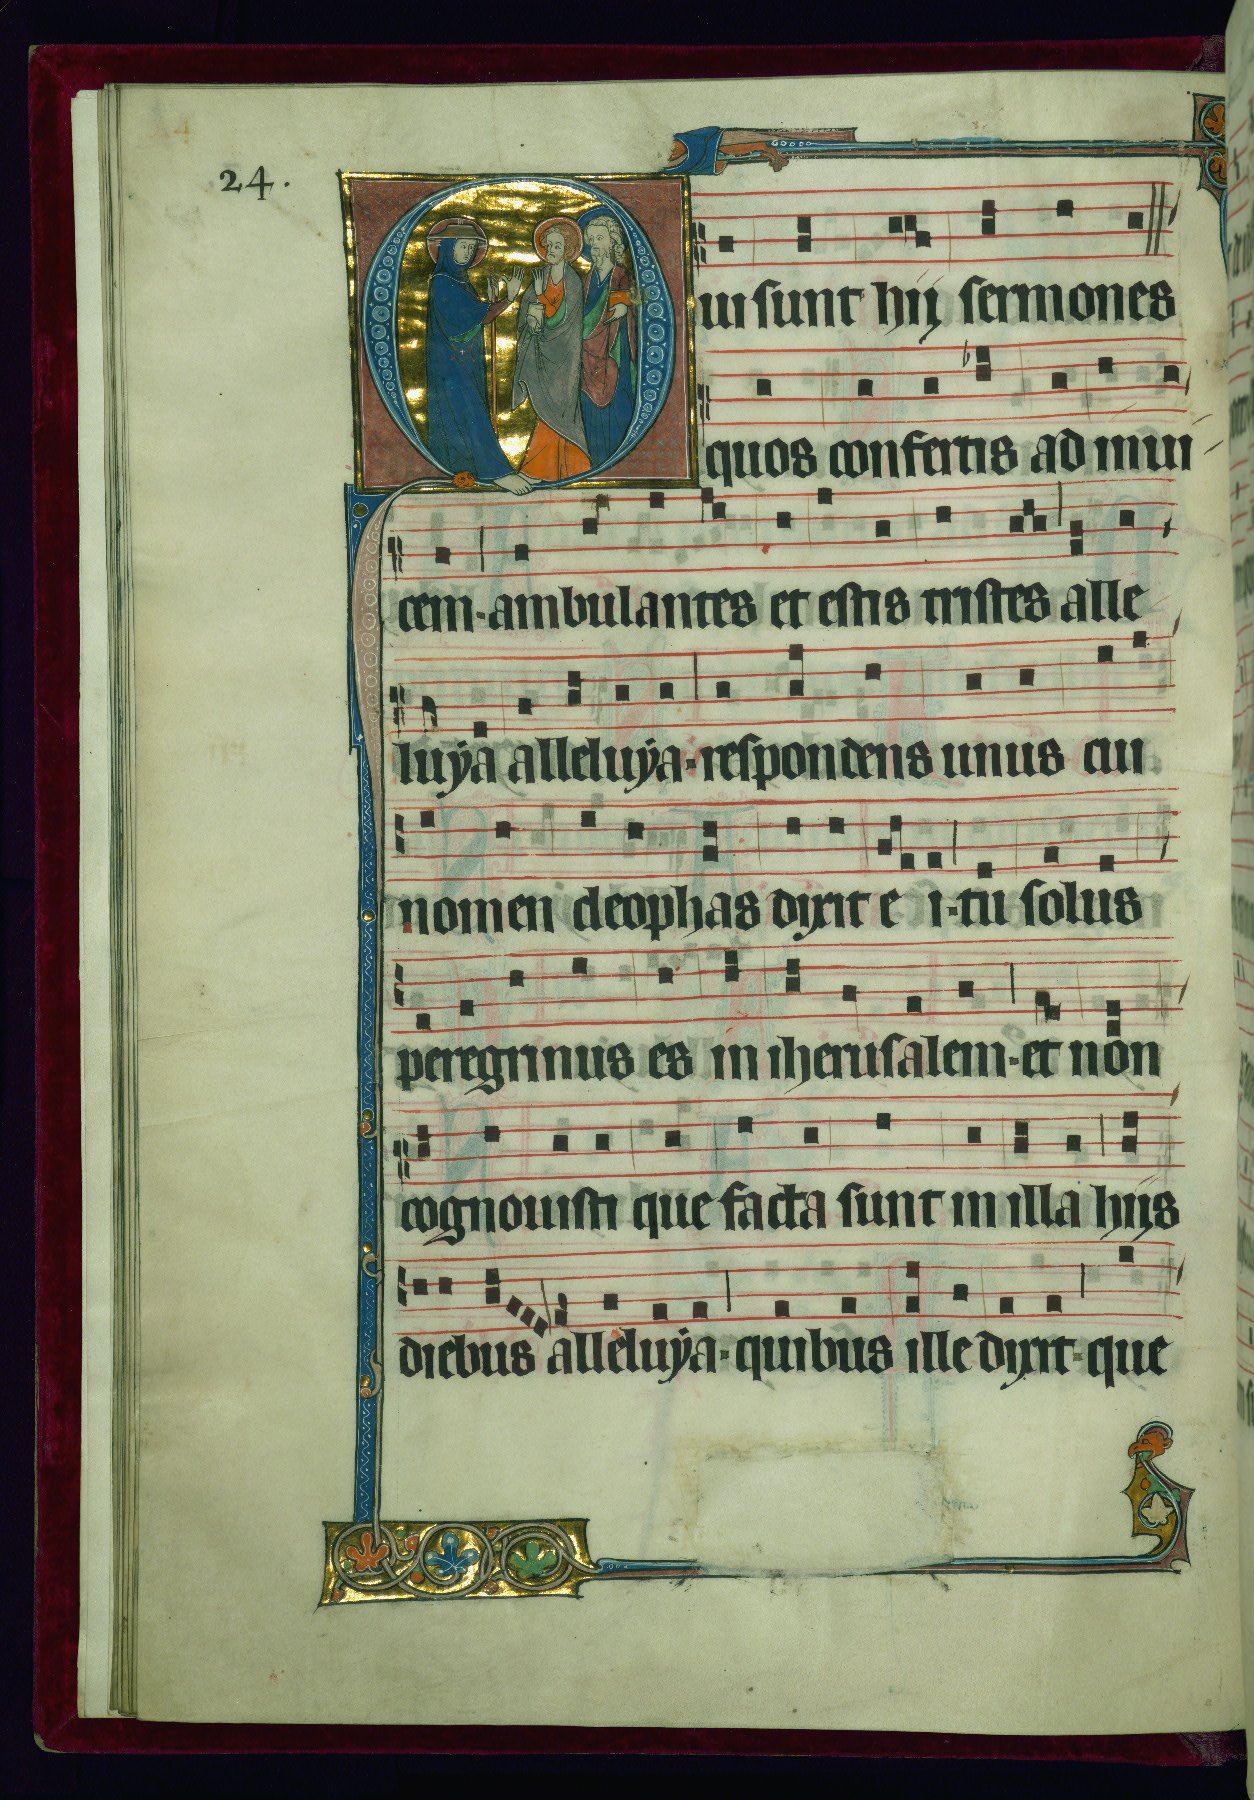 24.
Qui sunt hij sermones
quos confertis ad inui
cem·ambulantes et estis tristes alle
luÿa alleluÿa·respondens unus cui
nomen cleophas dixit e i·tu solus
peregrinus es in iherusalem·et non
cognouisti que facta sunt in illa hijs
diebus alleluÿa·quibus ille dixit·que